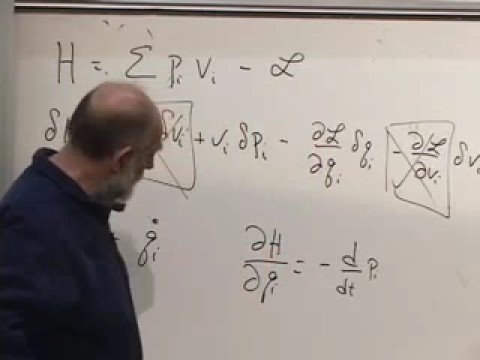 H = Σ pᵢ vᵢ − ℒ
δ δvᵢ + vᵢ δpᵢ − ∂ℒ/∂qᵢ δqᵢ − ∂ℒ/∂vᵢ δv
q̇ᵢ ∂H/∂qᵢ = − d/dt pᵢ